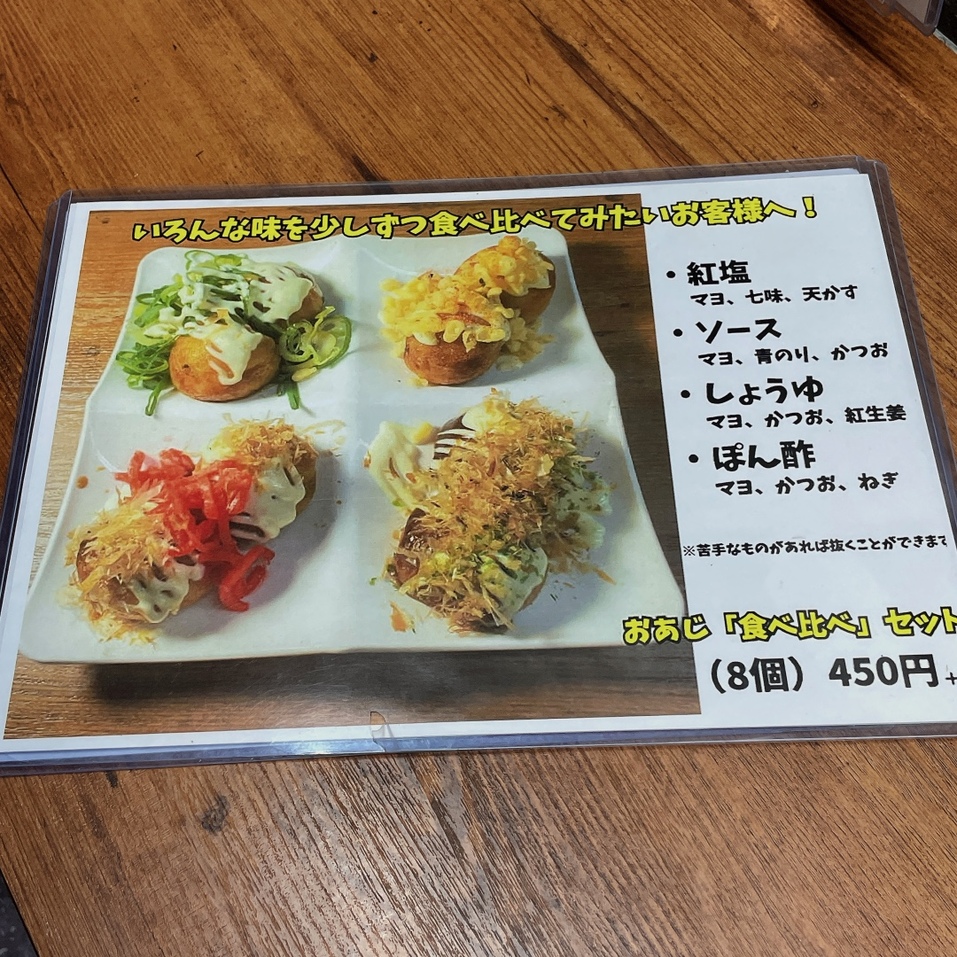 いろんな味を少しずつ食べ比べてみたいお客様へ！
・紅塩
マヨ、七味、天かす
・ソース
マヨ、青のり、かつお
・しょうゆ
マヨ、かつお、紅生姜
・ぽん酢
マヨ、かつお、ねぎ
※苦手なものがあれば抜くことができます
おあじ「食べ比べ」セット
（8個）450円+